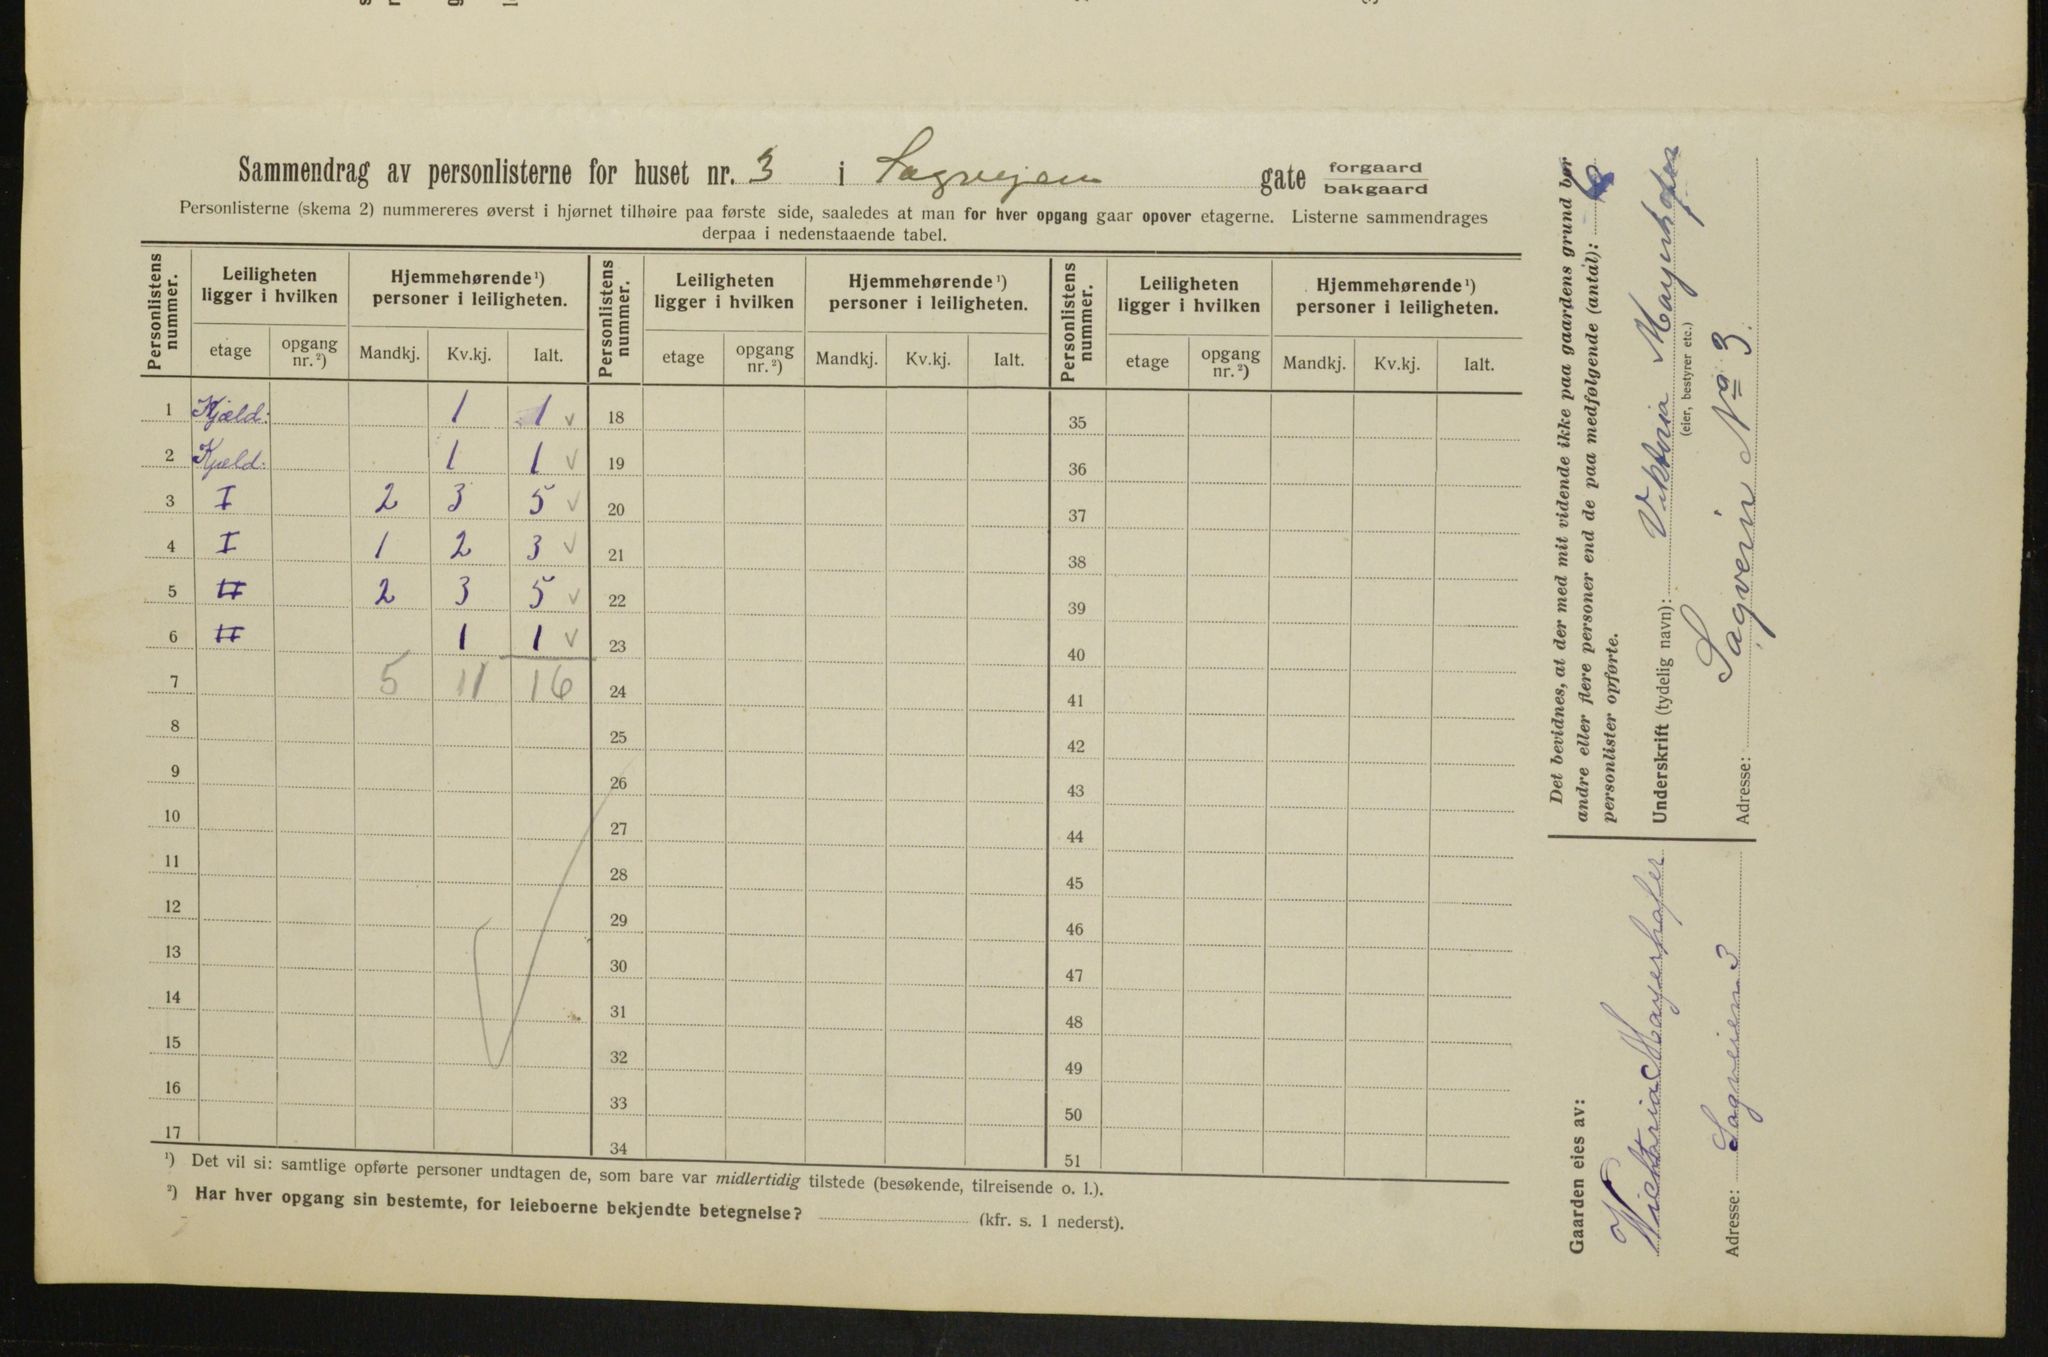 Sammendrag av personlisterne for huset nr. 3 i Sagvejen gate forgaard bakgaard
Personlisterne (skema 2) nummereres øverst i hjørnet tilhøire paa første side, saaledes at man for hver opgang gaar opover etagerne. Listerne sammendrages
derpaa i nedenstaaende tabel.
Personlistens nummer. Leiligheten ligger i hvilken Hjemmehørende ¹) personer i leiligheten. Personlistens nummer. Leiligheten ligger i hvilken Hjemmehørende ¹) personer i leiligheten. Personlistens nummer. Leiligheten ligger i hvilken Hjemmehørende ¹) personer i leiligheten.
etage opgang nr. ²) Mandkj. Kv.kj. Ialt. etage opgang nr. ²) Mandkj. Kv.kj. Ialt. etage opgang nr. ²) Mandkj. Kv.kj. Ialt.
1 Kjæld: 1 1 v 18 35
2 Kjæld: 1 1 v 19 36
3 I 2 3 5 v 20 37
4 I 1 2 3 v 21 38
5 II 2 3 5 v 22 39
6 II 1 1 v 23 40
7 5 11 16 24 41
8 25 42
9 26 43
10 27 44
11 28 45
12 29 46
13 30 47
14 31 48
15 32 49
16 33 50
17 34 51
¹) Det vil si: samtlige opførte personer undtagen de, som bare var midlertidig tilstede (besøkende, tilreisende o. l.).
²) Har hver opgang sin bestemte, for leieboerne bekjendte betegnelse? (kfr. s. 1 nederst).
Det bevidnes, at der med mit vidende ikke paa gaardens grund bor
andre eller flere personer end de paa medfølgende (antal): 6
personlister opførte.
Underskrift (tydelig navn): Viktoria Mayrhofer
(eier, bestyrer etc.)
Sagvein No 3.
Adresse:
Gaarden eies av:
Wichtoria Mayerhafer
Adresse: Sagveien 3